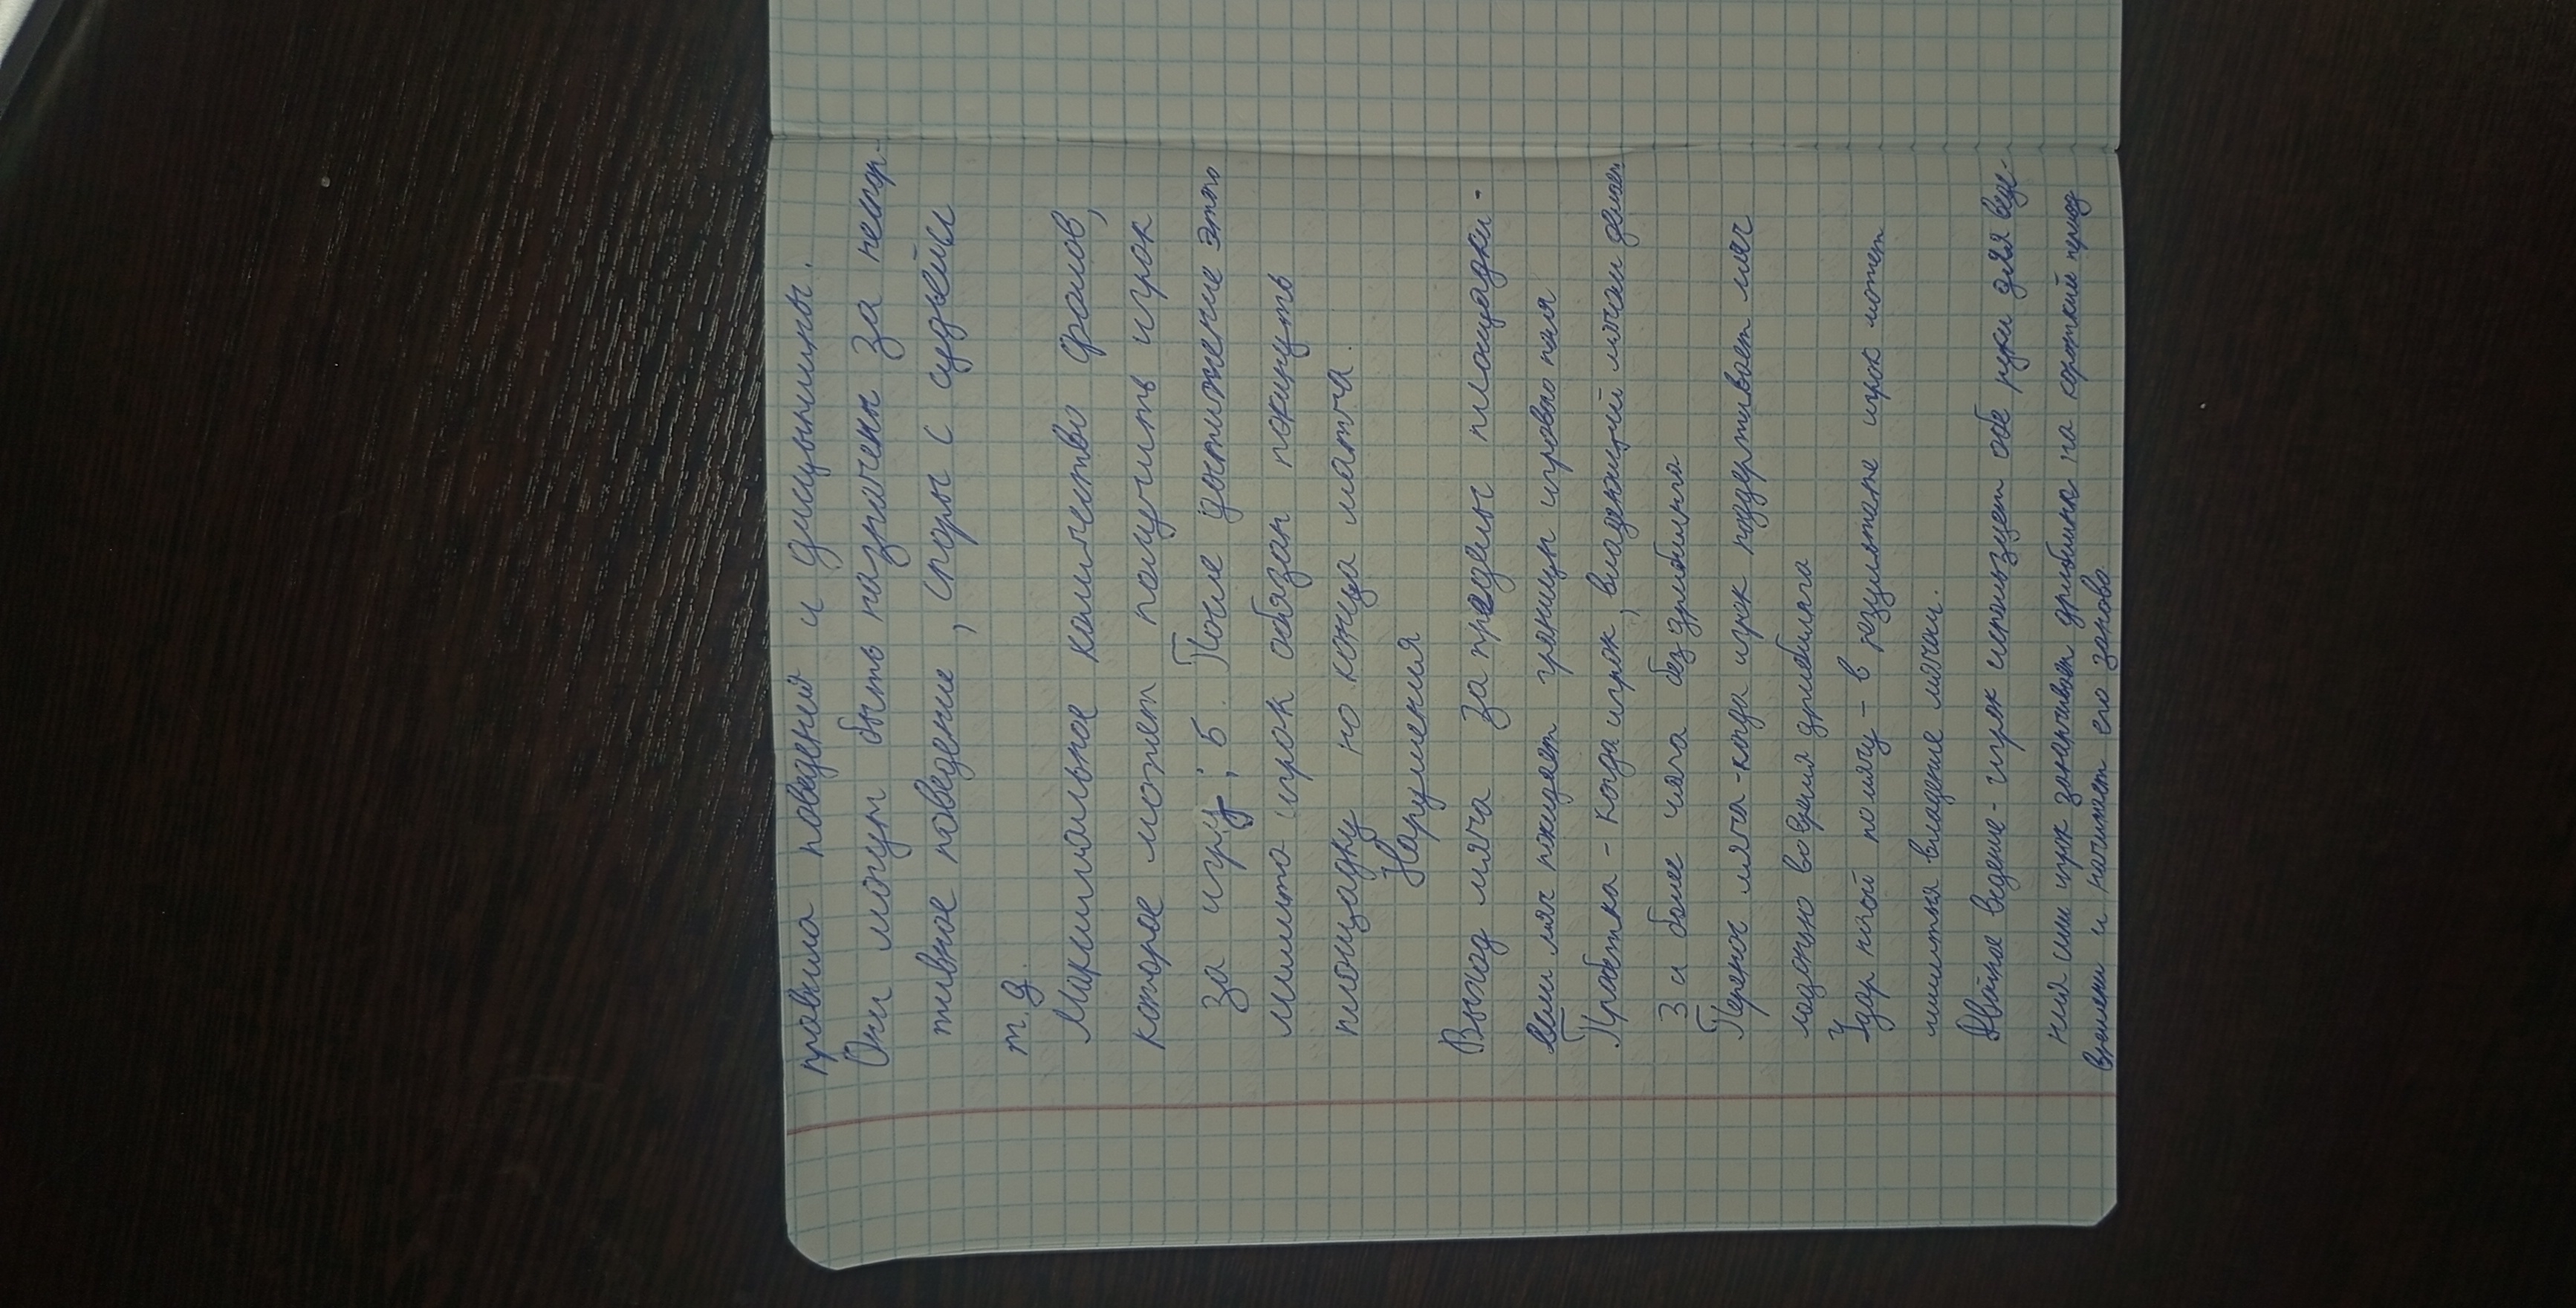 правила поведения и дисциплины.
Они могут быть назначены за неспор-
тивное поведение, споры с судьями
т.д.
Максимальное количество фолов,
которое может получить игрок
за игру; 5. После достижение этого
лимита игрок обязан покинуть
площадку но конца матча.
Нарушения
Выход мяча за пределы площадки -
если мяч покидает границы игрового поля
Пробежка - когда игрок, владеющий мячом делает
3 и более шага без дриблинга
Перенос мяча - когда игрок поддерживает мяч
ладонью во время дриблинга
Удар ногой по мячу - в результате игрок может
лишиться владение мячом.
Двойное ведение - игрок использует обе руки для веде-
ния или игрок заканчивает дриблинг на короткий период
времени и начинает его заново